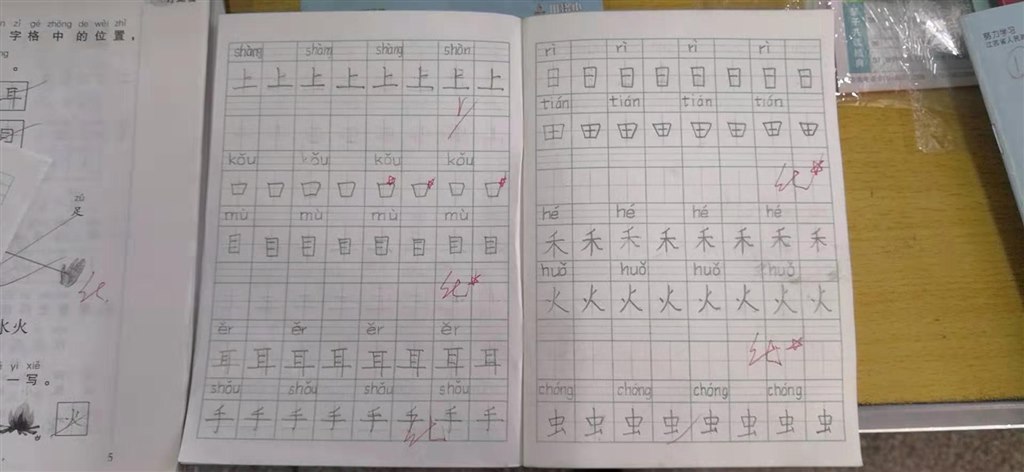 zǐ gé zhōng de wèi zhì
字格中的位置，
。
耳
目
zú
足
水火
yì xiě
一写。
火
5
shàng shàng shàng shàn
上 上 上 上 上 上 上 上
kǒu kǒu kǒu kǒu
口 口 口 口 口 口 口 口
mù mù mù mù
目 目 目 目 目 目 目 目
ěr ěr ěr ěr
耳 耳 耳 耳 耳 耳 耳 耳
shǒu shǒu shǒu shǒu
手 手 手 手 手 手 手 手
rì rì rì rì
日 日 日 日 日 日 日 日
tián tián tián tián
田 田 田 田 田 田 田 田
hé hé hé hé
禾 禾 禾 禾 禾 禾 禾 禾
huǒ huǒ huǒ huǒ
火 火 火 火 火 火 火 火
chóng chóng chóng chóng
虫 虫 虫 虫 虫 虫 虫 虫
努力学习